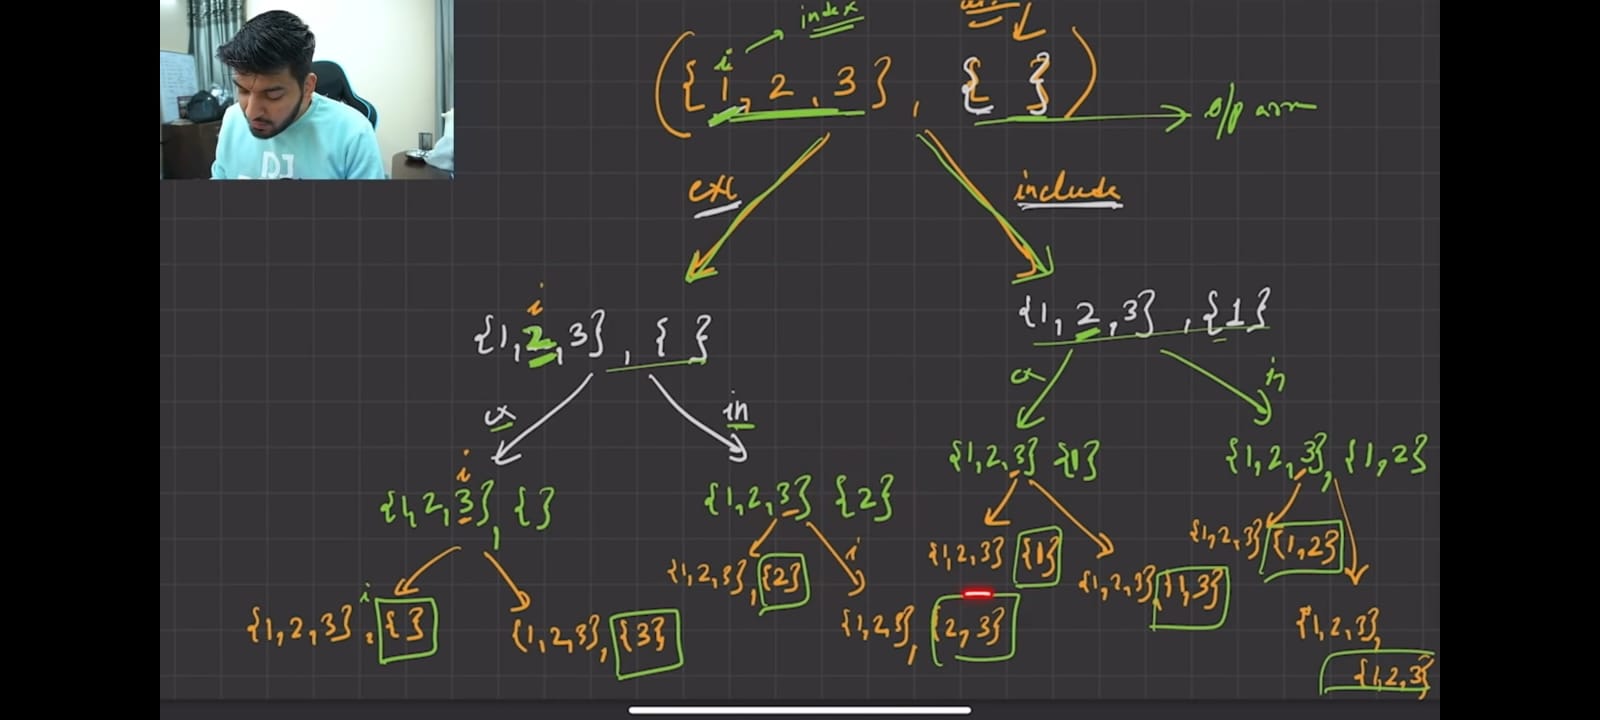 i → index
({1, 2, 3}, { }) → o/p arr
exc
include
i
{1, 2, 3}, { }
{1, 2, 3}, {1}
ex
in
ex
in
i
{1, 2, 3}, { }
{1, 2, 3} {2}
{1, 2, 3} {1}
{1, 2, 3}, {1, 2}
i
{1, 2, 3}, { }
{1, 2, 3}, {3}
{1, 2, 3}, {2}
i
{1, 2, 3}, {2, 3}
{1, 2, 3} {1}
{1, 2, 3} {1, 3}
{1, 2, 3} {1, 2}
{1, 2, 3},
{1, 2, 3}
DJ